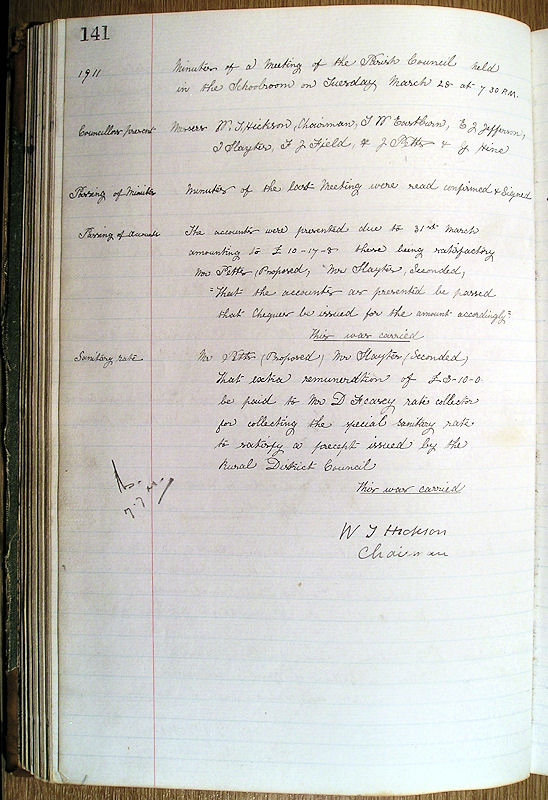 141
1911
Minutes of a Meeting of the Parish Council held
in the Schoolroom on Tuesday March 28 at 7 30 P.M.
Councillors present Messrs W. T Hickson, Chairman, T W Eastburn, E J Jefferson,
T Slayter, F J Field, & J Pitts & G Hine
Passing of Minutes Minutes of the last Meeting were read confirmed & Signed
Passing of Accounts The accounts were presented due to 31st March
amounting to £10-17-8 these being satisfactory
Mr Pitts, (Proposed, Mr Slayter, Seconded,
"That the accounts as presented be passed
that Cheques be issued for the amount accordingly"
This was carried
Sanitary rate Mr Pitts (Proposed) Mr Slayter (Seconded)
That extra remunerdtion of £3-10-0
be paid to Mr D Fearey rate collector
for collecting the special sanitary rate
to satisfy a precept issued by the
Rural District Council
This was carried
W T Hickson
Chairman